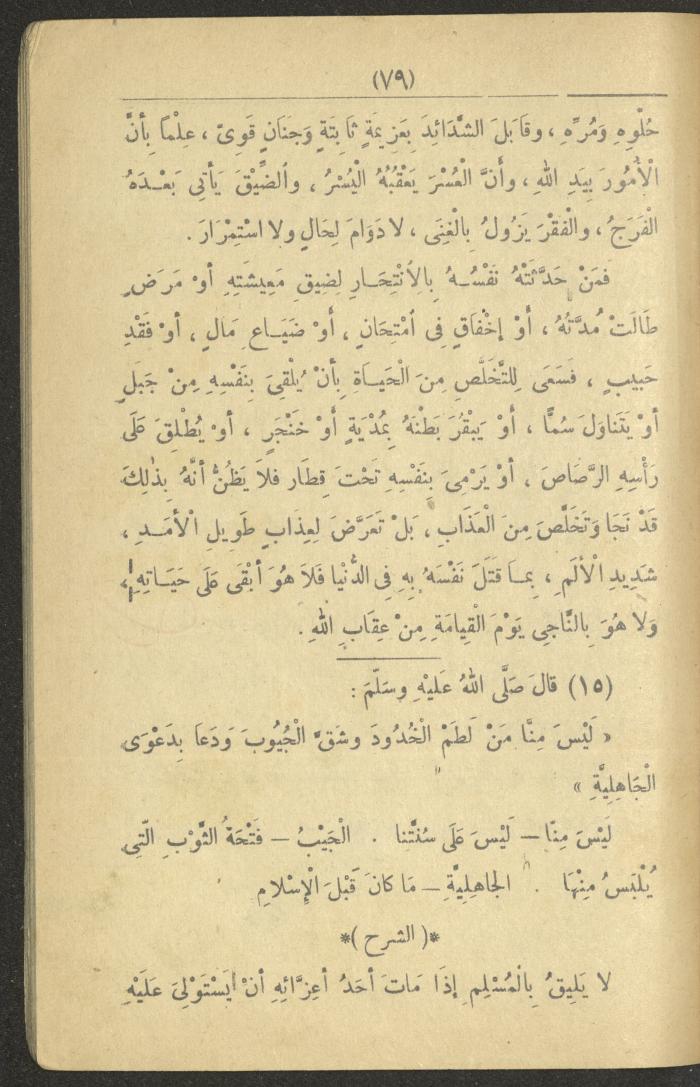 (٧٩)
حُلْوِهِ وَمُرِّهِ ، وقَابَلَ الشَّدَائِدَ بِعَزِيمَةٍ ثَابِتَةٍ وَجَنَانٍ قَوِىّ ، عِلْماً بِأَنَّ
الْأُمُورَ بِيَدِ اللهِ ، وأَنَّ الْعُسْرَ يَعْقُبُهُ الْيُسْرُ ، والضِّيْقَ يَأتِى بَعْدَهُ
الْفَرَجُ ، والْفقْرَ يَزُولُ بِالْغِنَى ، لا دَوَامَ لِحَالٍ ولا اسْتِمْرَارَ .
فمَنْ حَدَّثَتْهُ نَفْسُهُ بِالِانْتِحَارِ لِضِيقِ مَعِيشَتِهِ أوْ مَرَضٍ
طَالَتْ مُدَّتُهُ ، أوْ إخْفَاقٍ فِى امْتِحَانٍ ، أوْ ضَيَاعِ مَالٍ ، أوْ فَقْدِ
حَبِيبٍ ، فَسَعَى لِلتَّخَلُّصِ مِنَ الْحَيَاةِ بِأَنْ يُلْقِىَ بِنَفْسِهِ مِنْ جَبَلٍ
أوْ يَتَنَاوَلَ سُمًّا ، أوْ يَبْقُرَ بَطْنَهُ بِمُدْيَةٍ أَوْ خَنْجَرٍ ، أوْ يُطْلِقَ عَلَى
رَأْسِهِ الرَّصَاصَ ، أوْ يَرْمِىَ بِنَفْسِهِ تَحْتَ قِطَار فلاَ يَظُنُّ أنَّهُ بِذٰلِكَ
قَدْ نَجَا وَتَخَلَّصَ مِنَ الْعَذَابِ ، بَلْ تَعَرَّضَ لِعِذَابٍ طَوِيلِ الْأَمَدِ ،
شَدِيدِ الْأَلَمِ ، بِمَا قَتَلَ نَفْسَهُ بِهِ فِى الدُّنْيا فَلاَ هُوَ أبْقَى عَلَى حَيَاتِهِ ،
وَلا هُوَ بِالنَّاجِى يَوْمَ الْقِيامَةِ مِنْ عِقَابِ اللهِ .
(١٥) قالَ صَلَّى اللهُ عَليْهِ وسَلّمَ :
« لَيْسَ مِنَّا مَنْ لَطَمْ الْخُدُودَ وشَقَّ الْجُيُوبَ وَدَعَا بِدَعْوَى
الْجَاهِلِيَّةِ »
لَيْسَ مِنّا — لَيْسَ عَلَى سُنّتنا . الْجَيْبُ — فَتْحَةُ الثّوْبِ الّتِى
يُلْبَسُ مِنْهَا . الجَاهِلِيَّةِ — مَا كانَ قَبْلَ الْإِسْلامِ
*( الشرح )*
لا يَلِيقُ بِالْمُسْلِمِ إذَا مَاتَ أَحَدُ أعِزَّائِهِ أنْ يَسْتَوْلِىَ عَلَيْهِ